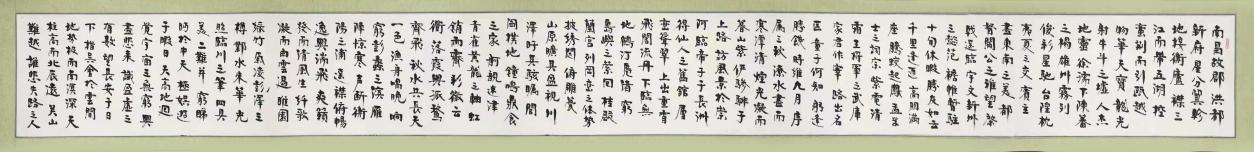 南昌故郡洪都
新府星分翼軫
地接衡廬襟三
江而帶五湖控
蠻荊而引甌越
物華天寶龍光
射牛斗之墟人杰
地靈徐孺下陳蕃
之榻雄州霧列
俊彩星馳台隍枕
夷夏之交賓主
盡東南之美都
督閻公之雅望棨
戟遙臨宇文新州
之懿範襜帷暫駐
十旬休暇勝友如云
千里逢迎高朋滿
座騰蛟起鳳孟學
士之詞宗紫電清
霜王將軍之武庫
家君作宰路出名
區童子何知躬逢
勝餞時維九月序
屬三秋潦水盡而
寒潭清煙光凝而
暮山紫儼驂騑于
上路訪風景於崇
阿臨帝子之長洲
得仙人之舊館層
巒聳翠上出重霄
飛閣流丹下臨無
地鶴汀鳧渚窮
島嶼之縈回桂殿
蘭宮列岡巒之體勢
披繡闥俯雕甍
山原曠其盈視川
澤紆其駭矚閭
閻撲地鐘鳴鼎食
之家舸艦迷津
青雀黃龍之軸虹
銷雨霽彩徹云
衢落霞與孤鶩
齊飛秋水共長天
一色漁舟唱晚响
窮彭蠡之濱雁
陣驚寒聲斷衡
陽之浦遙襟俯暢
逸興遄飛爽籟
發而清風生纖歌
凝而白雲遏睢園
綠竹氣凌彭澤之
樽鄴水朱華光
照臨川之筆四美
具二難并窮睇
眄於中天極娛游
于暇日天高地迥
覺宇宙之無窮興
盡悲來識盈虛之
有數望長安于日
下指吳會於雲間
地勢極而南溟深天
柱高而北辰遠關山
難越誰悲失路之人